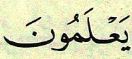 يَعْلَمُونَ